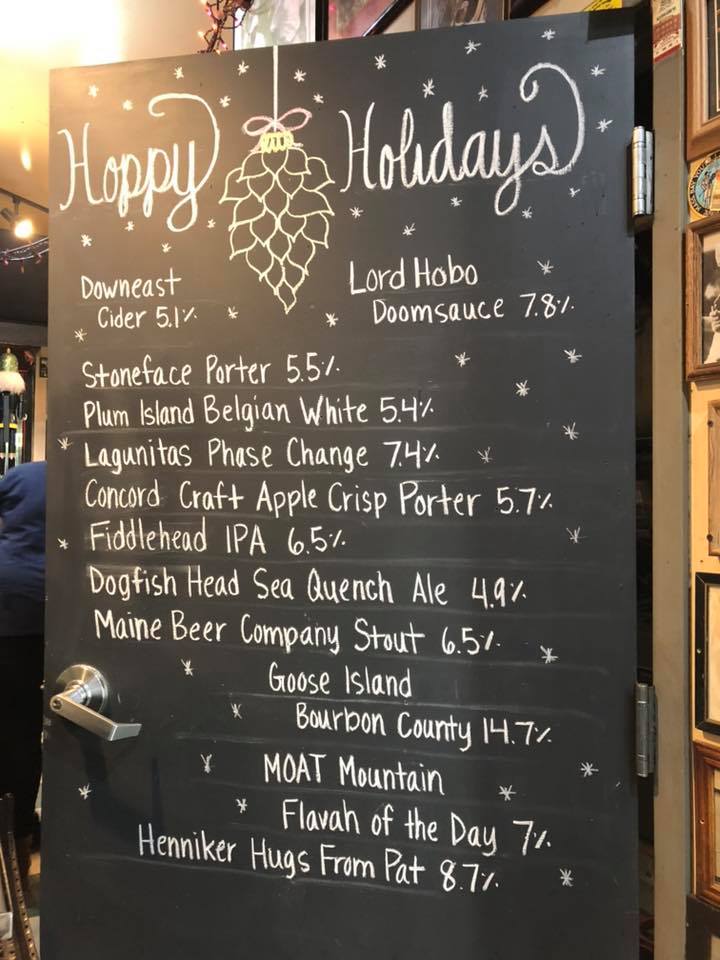 Hoppy Holidays
Downeast
Cider 5.1%
Lord Hobo
Doomsauce 7.8%
Stoneface Porter 5.5%
Plum Island Belgian White 5.4%
Lagunitas Phase Change 7.4%
Concord Craft Apple Crisp Porter 5.7%
Fiddlehead IPA 6.5%
Dogfish Head Sea Quench Ale 4.9%
Maine Beer Company Stout 6.5%
Goose Island
Bourbon County 14.7%
MOAT Mountain
Flavah of the Day 7%
Henniker Hugs From Pat 8.7%